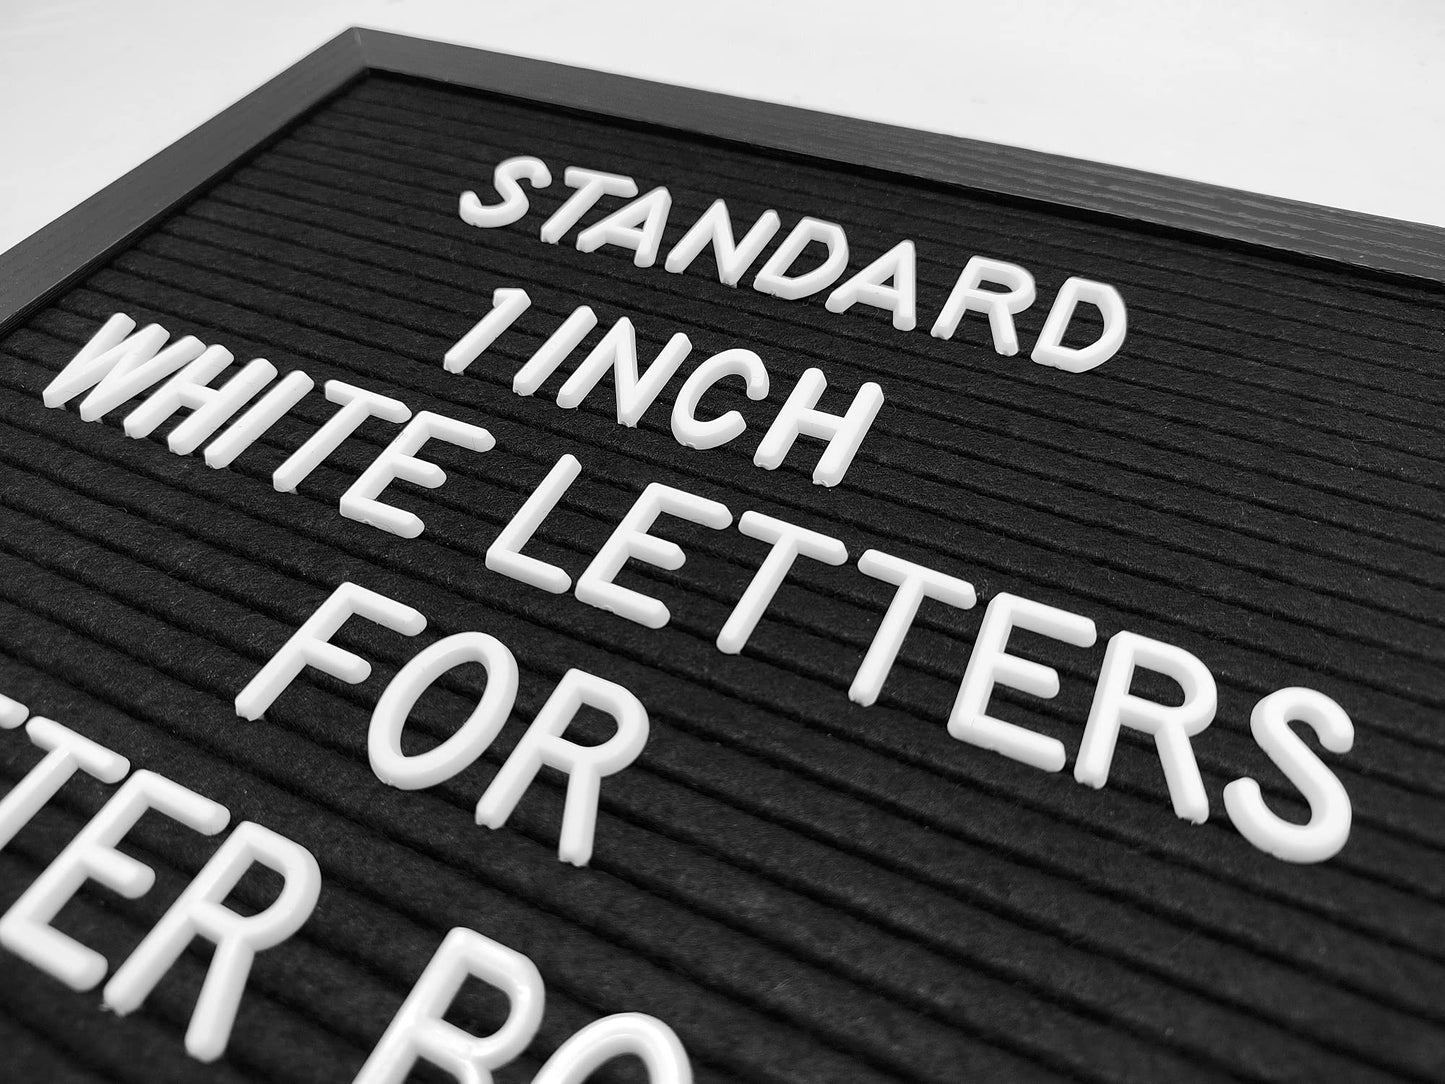 STANDARD
1 INCH
WHITE LETTERS
FOR